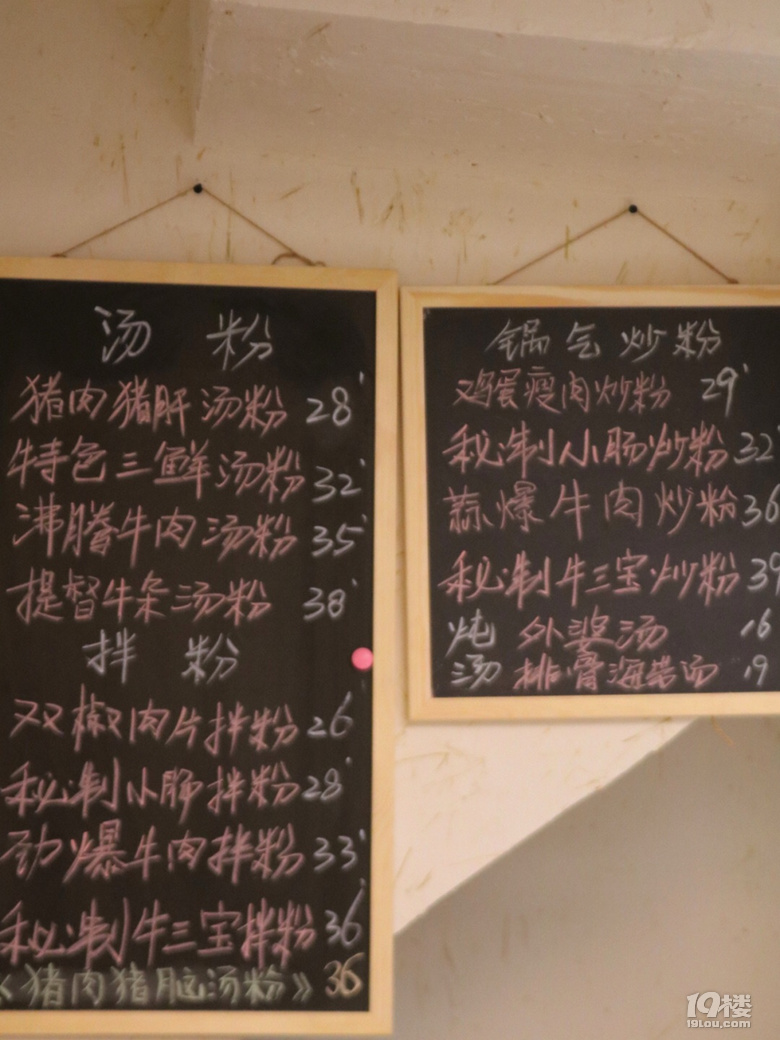 汤 粉
猪肉猪肝汤粉 28
特色三鲜汤粉 32
沸腾牛肉汤粉 35
提督牛杂汤粉 38
拌 粉
双椒肉片拌粉 26
秘制小肠拌粉 28
劲爆牛肉拌粉 33
秘制牛三宝拌粉 36
《猪肉猪脑汤粉》 36
锅气炒粉
鸡蛋瘦肉炒粉 29
秘制小肠炒粉 32
蒜爆牛肉炒粉 36
秘制牛三宝炒粉 39
炖 外婆汤 16
汤 排骨海带汤 19
19楼
19lou.com